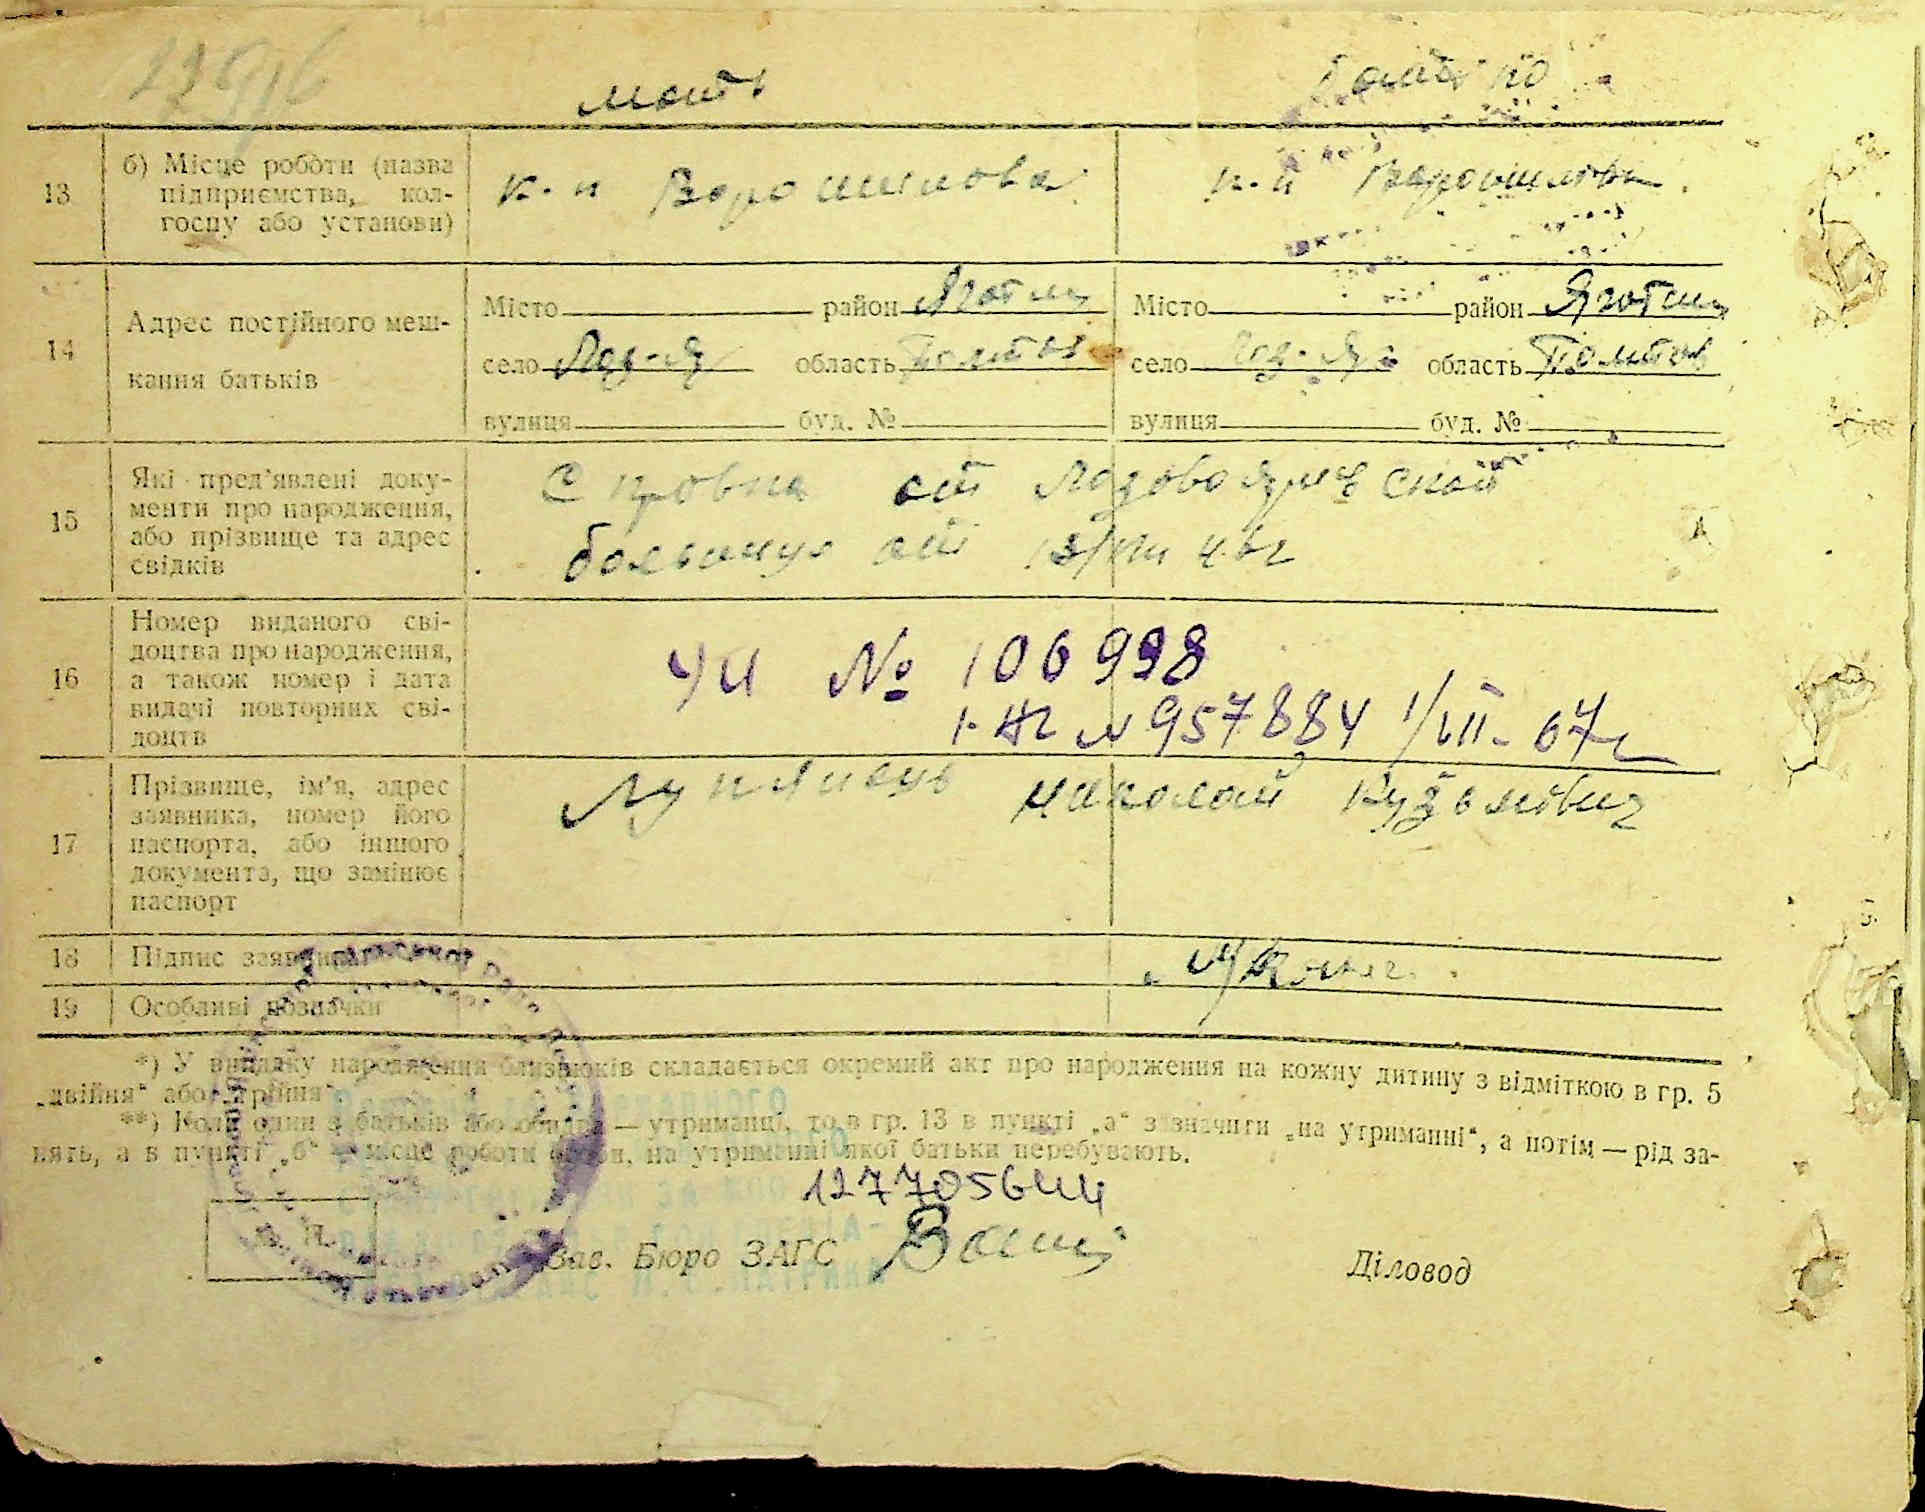 мать
13 б) Місце роботи (назва
підприємства, кол-
госпу або установи)
к-п Ворошилова
к-п Ворошилова
14 Адрес постійного меш-
кання батьків
Місто район Яготин Місто район Яготин
село Лоз-Яр область Полтав село Лоз-Яр область Полтав
вулиця буд. № вулиця буд. №
15 Які пред'явлені доку-
менти про народження,
або прізвище та адрес
свідків
Справка от Лозовояровской
больници от 13/VIII 46г
16 Номер виданого сві-
доцтва про народження,
а також номер і дата
видачі повторних сві-
доцтв
№ 106998
№ 957884 1/VII-67г
17 Прізвище, ім'я, адрес
заявника, номер його
паспорта, або іншого
документа, що замінює
паспорт
николай Кузьмович
18 Підпис заявника
19 Особливі позначки
*) У випадку народження близнюків складається окремий акт про народження на кожну дитину з відміткою в гр. 5
„двійня“ або „трійня“
**) Коли один з батьків або обидва — утриманці, то в гр. 13 в пункті „а“ зазначити „на утриманні“, а потім — рід за-
нять, а в пункті „б“ — місце роботи особи, на утриманні якої батьки перебувають.
1277705644
Зав. Бюро ЗАГС
Діловод